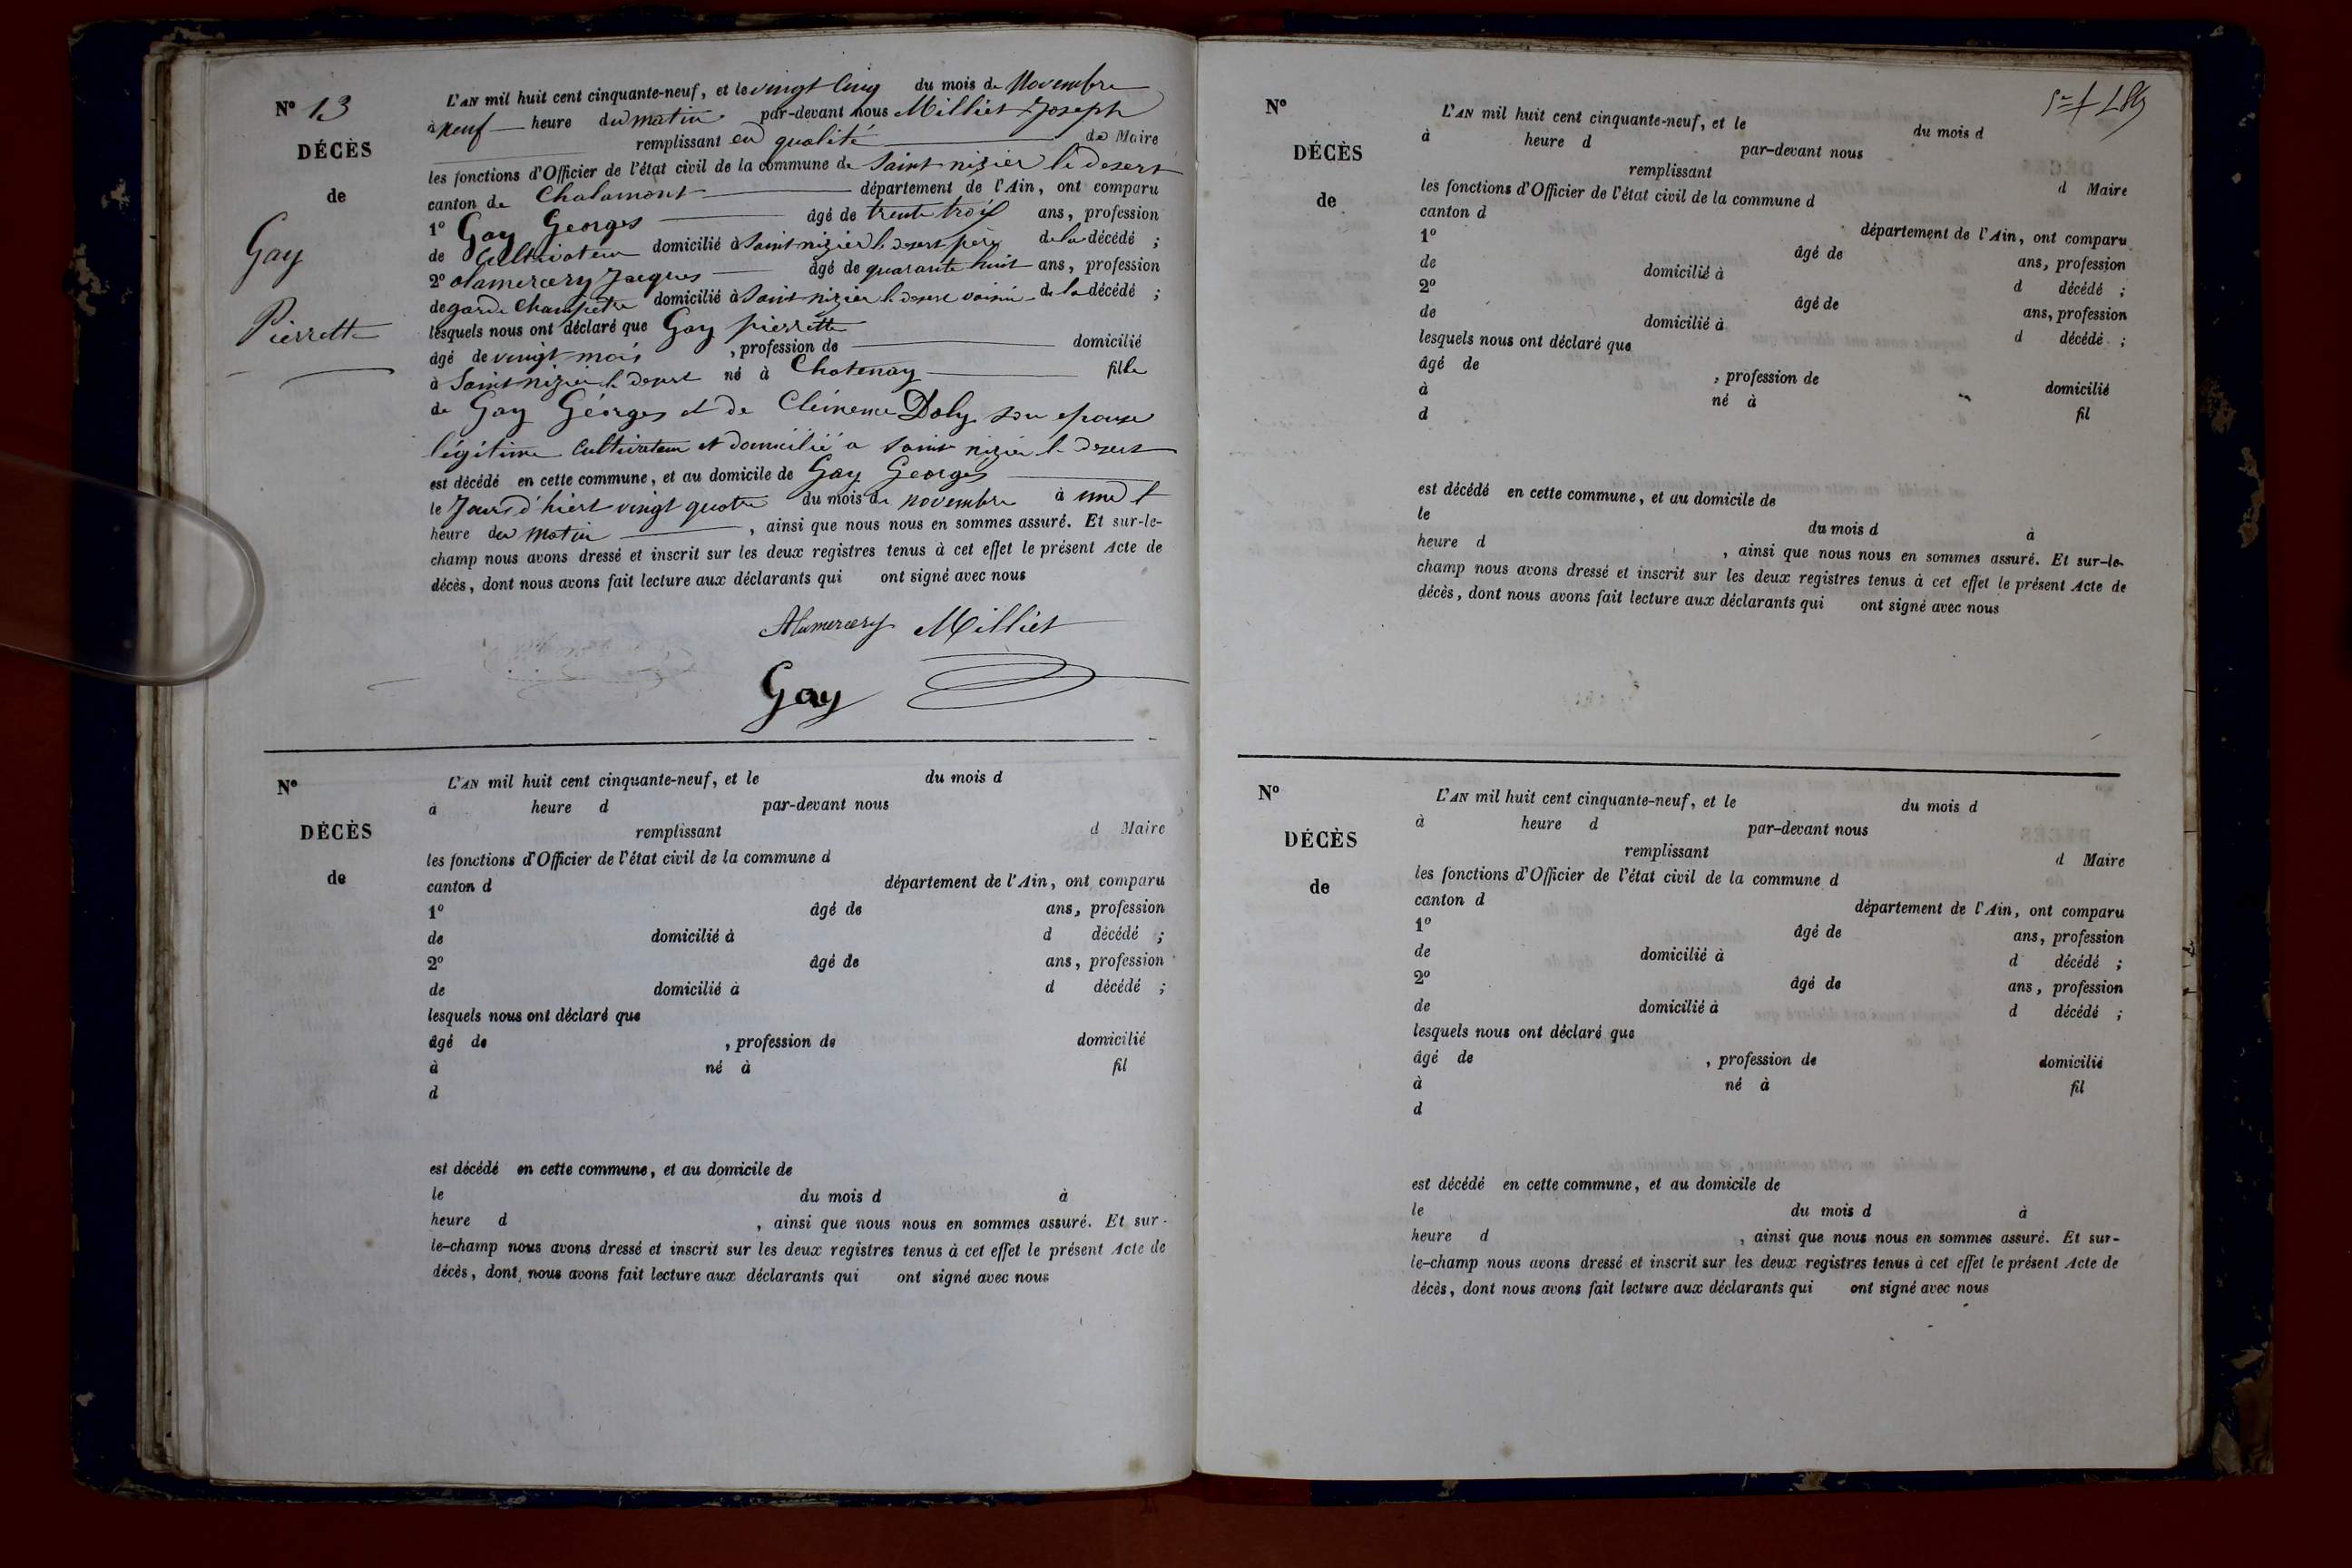 N° 13
DÉCÈS
de
Gay
Pierrette
L'AN mil huit cent cinquante-neuf, et le vingt Cinq du mois de Novembre
à neuf heure du matin par-devant nous Milliet Joseph
remplissant en qualité de Maire
les fonctions d'Officier de l'état civil de la commune de Saint nizier le desert
canton de Chalamont département de l'Ain, ont comparu
1° Gay Georges âgé de trente trois ans, profession
de Cultivateur domicilié à Saint nizier le desert père de la décédé ;
2° alamercery Jacques âgé de quarante huit ans, profession
de garde Champetre domicilié à Saint nizier le desert voisin de la décédé ;
lesquels nous ont déclaré que Gay pierrette
âgé de vingt mois , profession de domicilié
à Saint nizier le desert né à Chatenay fille
de Gay Géorges et de Clémence Doly son epouse
légitime Cultivateur et domicilié a Saint nizier le desert
est décédé en cette commune, et au domicile de Gay Georges
le Jours d'hiert vingt quatre du mois de novembre à une
heure du matin , ainsi que nous nous en sommes assuré. Et sur-le-
champ nous avons dressé et inscrit sur les deux registres tenus à cet effet le présent Acte de
décès, dont nous avons fait lecture aux déclarants qui ont signé avec nous
Alamercery Milliet
Gay
N°
DÉCÈS
de
L'AN mil huit cent cinquante-neuf, et le du mois d
à heure d par-devant nous
remplissant d Maire
les fonctions d'Officier de l'état civil de la commune d
canton d département de l'Ain, ont comparu
1° âgé de ans, profession
de domicilié à d décédé ;
2° âgé de ans, profession
de domicilié à d décédé ;
lesquels nous ont déclaré que
âgé de , profession de domicilié
à né à fil
d
est décédé en cette commune, et au domicile de
le du mois d à
heure d , ainsi que nous nous en sommes assuré. Et sur-
le-champ nous avons dressé et inscrit sur les deux registres tenus à cet effet le présent Acte de
décès, dont nous avons fait lecture aux déclarants qui ont signé avec nous
N°
DÉCÈS
de
L'AN mil huit cent cinquante-neuf, et le du mois d
à heure d par-devant nous
remplissant d Maire
les fonctions d'Officier de l'état civil de la commune d
canton d département de l'Ain, ont comparu
1° âgé de ans, profession
de domicilié à d décédé ;
2° âgé de ans, profession
de domicilié à d décédé ;
lesquels nous ont déclaré que
âgé de , profession de domicilié
à né à fil
d
est décédé en cette commune, et au domicile de
le du mois d à
heure d , ainsi que nous nous en sommes assuré. Et sur-le-
champ nous avons dressé et inscrit sur les deux registres tenus à cet effet le présent Acte de
décès, dont nous avons fait lecture aux déclarants qui ont signé avec nous
N°
DÉCÈS
de
L'AN mil huit cent cinquante-neuf, et le du mois d
à heure d par-devant nous
remplissant d Maire
les fonctions d'Officier de l'état civil de la commune d
canton d département de l'Ain, ont comparu
1° âgé de ans, profession
de domicilié à d décédé ;
2° âgé de ans, profession
de domicilié à d décédé ;
lesquels nous ont déclaré que
âgé de , profession de domicilié
à né à fil
d
est décédé en cette commune, et au domicile de
le du mois d à
heure d , ainsi que nous nous en sommes assuré. Et sur-
le-champ nous avons dressé et inscrit sur les deux registres tenus à cet effet le présent Acte de
décès, dont nous avons fait lecture aux déclarants qui ont signé avec nous